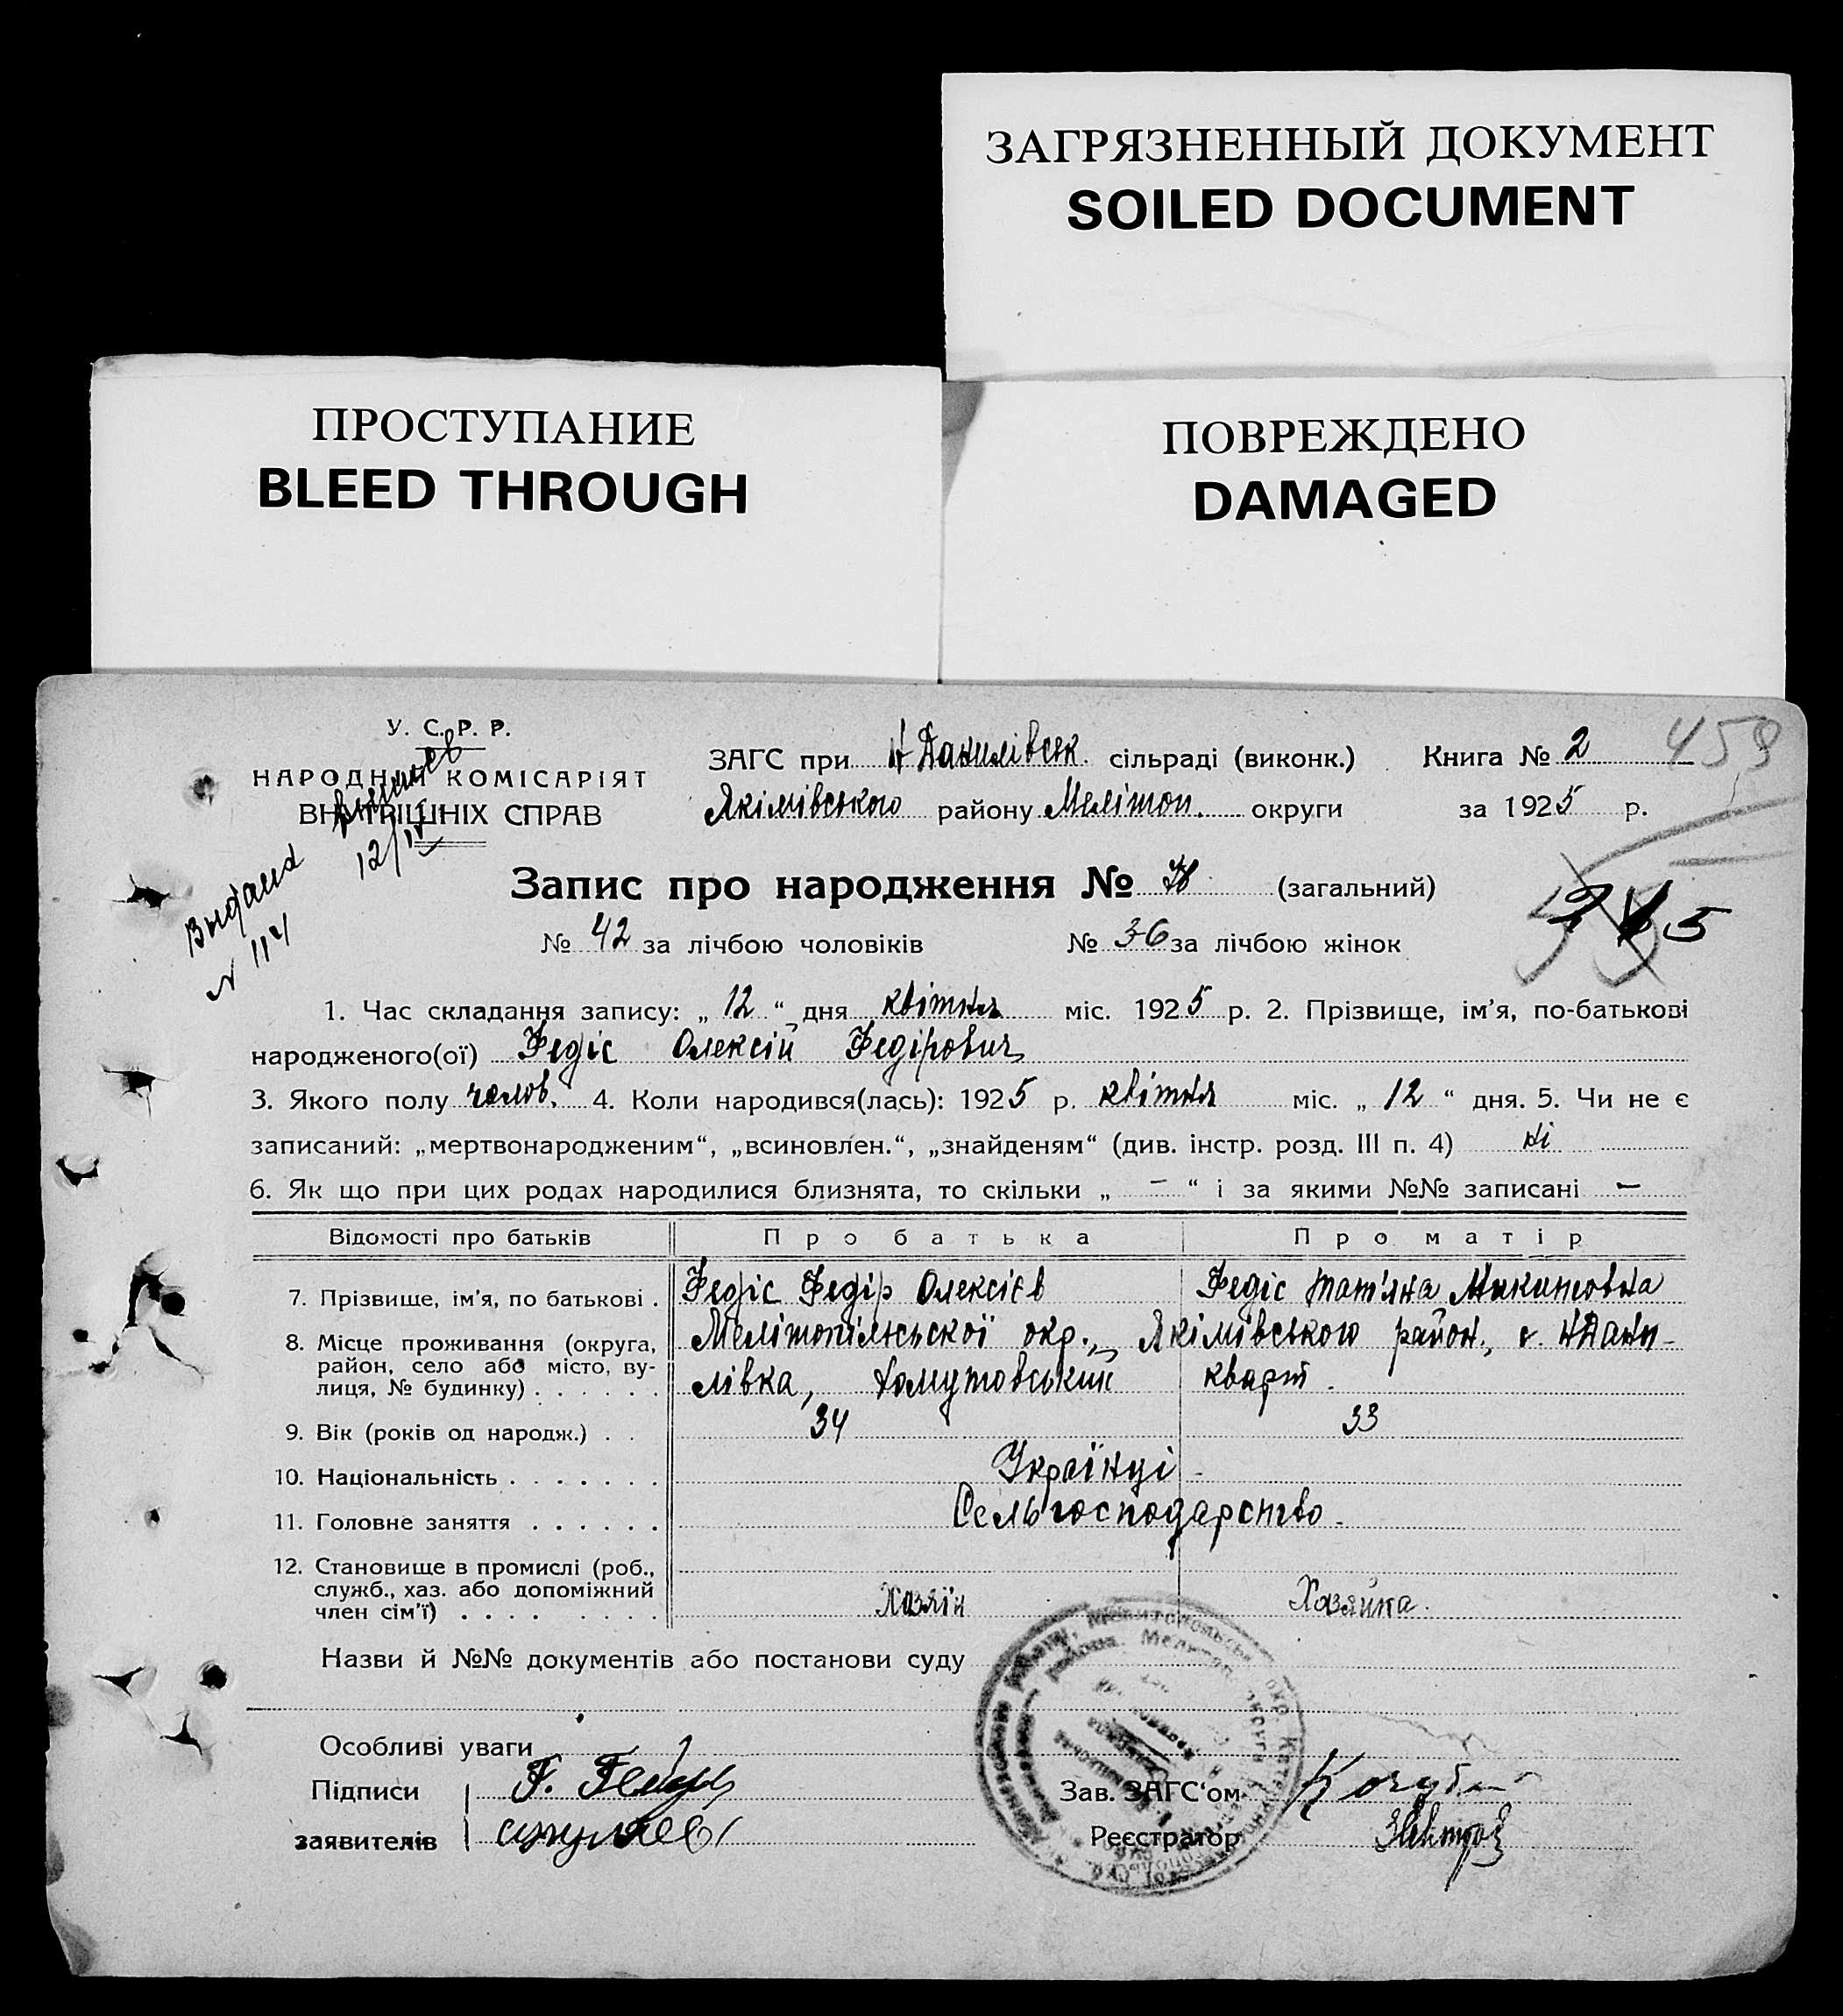 ЗАГРЯЗНЕННЫЙ ДОКУМЕНТ
SOILED DOCUMENT
ПРОСТУПАНИЕ
BLEED THROUGH
ПОВРЕЖДЕНО
DAMAGED
У. С. Р. Р.
НАРОДНІЙ КОМІСАРІЯТ
ВНУТРІШНІХ СПРАВ
Выдана
12/IV
N 114
ЗАГС при Н Данилівськ. сільраді (виконк.) Книга № 2
459
Якімівського району Мелітоп. округи за 1925 р.
Запис про народження № 78 (загальний)
№ 42 за лічбою чоловіків № 36 за лічбою жінок
1. Час складання запису: „ 12 “ дня квітня міс. 1925 р. 2. Прізвище, ім'я, по-батькові
народженого(ої) Федіс Олексій Федірович
3. Якого полу чолов. 4. Коли народився(лась): 1925 р. квітня міс. „ 12 “ дня. 5. Чи не є
записаний: „мертвонародженим“, „всиновлен.“, „знайденям“ (див. інстр. розд. III п. 4) ні
6. Як що при цих родах народилися близнята, то скільки „ – “ і за якими №№ записані –
Відомості про батьків Про батька Про матір
7. Прізвище, ім'я, по батькові . Федіс Федір Олексієв Федіс Тат'яна Микитовна
8. Місце проживання (округа, Мелітопільської окр., Якімівського район., с. НДани-
район, село або місто, ву-
лиця, № будинку) . . . . . . лівка, Хомутовський кварт.
9. Вік (років од народж.) . . 34 33
10. Національність . . . . . . . Українці
11. Головне заняття . . . . . . Сельгосподарство.
12. Становище в промислі (роб.,
служб., хаз. або допоміжний
член сім'ї) . . . . . . . . . Хазяїн Хазяйка.
Назви й №№ документів або постанови суду
Особливі уваги
Підписи
заявителів
Зав. ЗАГС'ом
Реєстратор